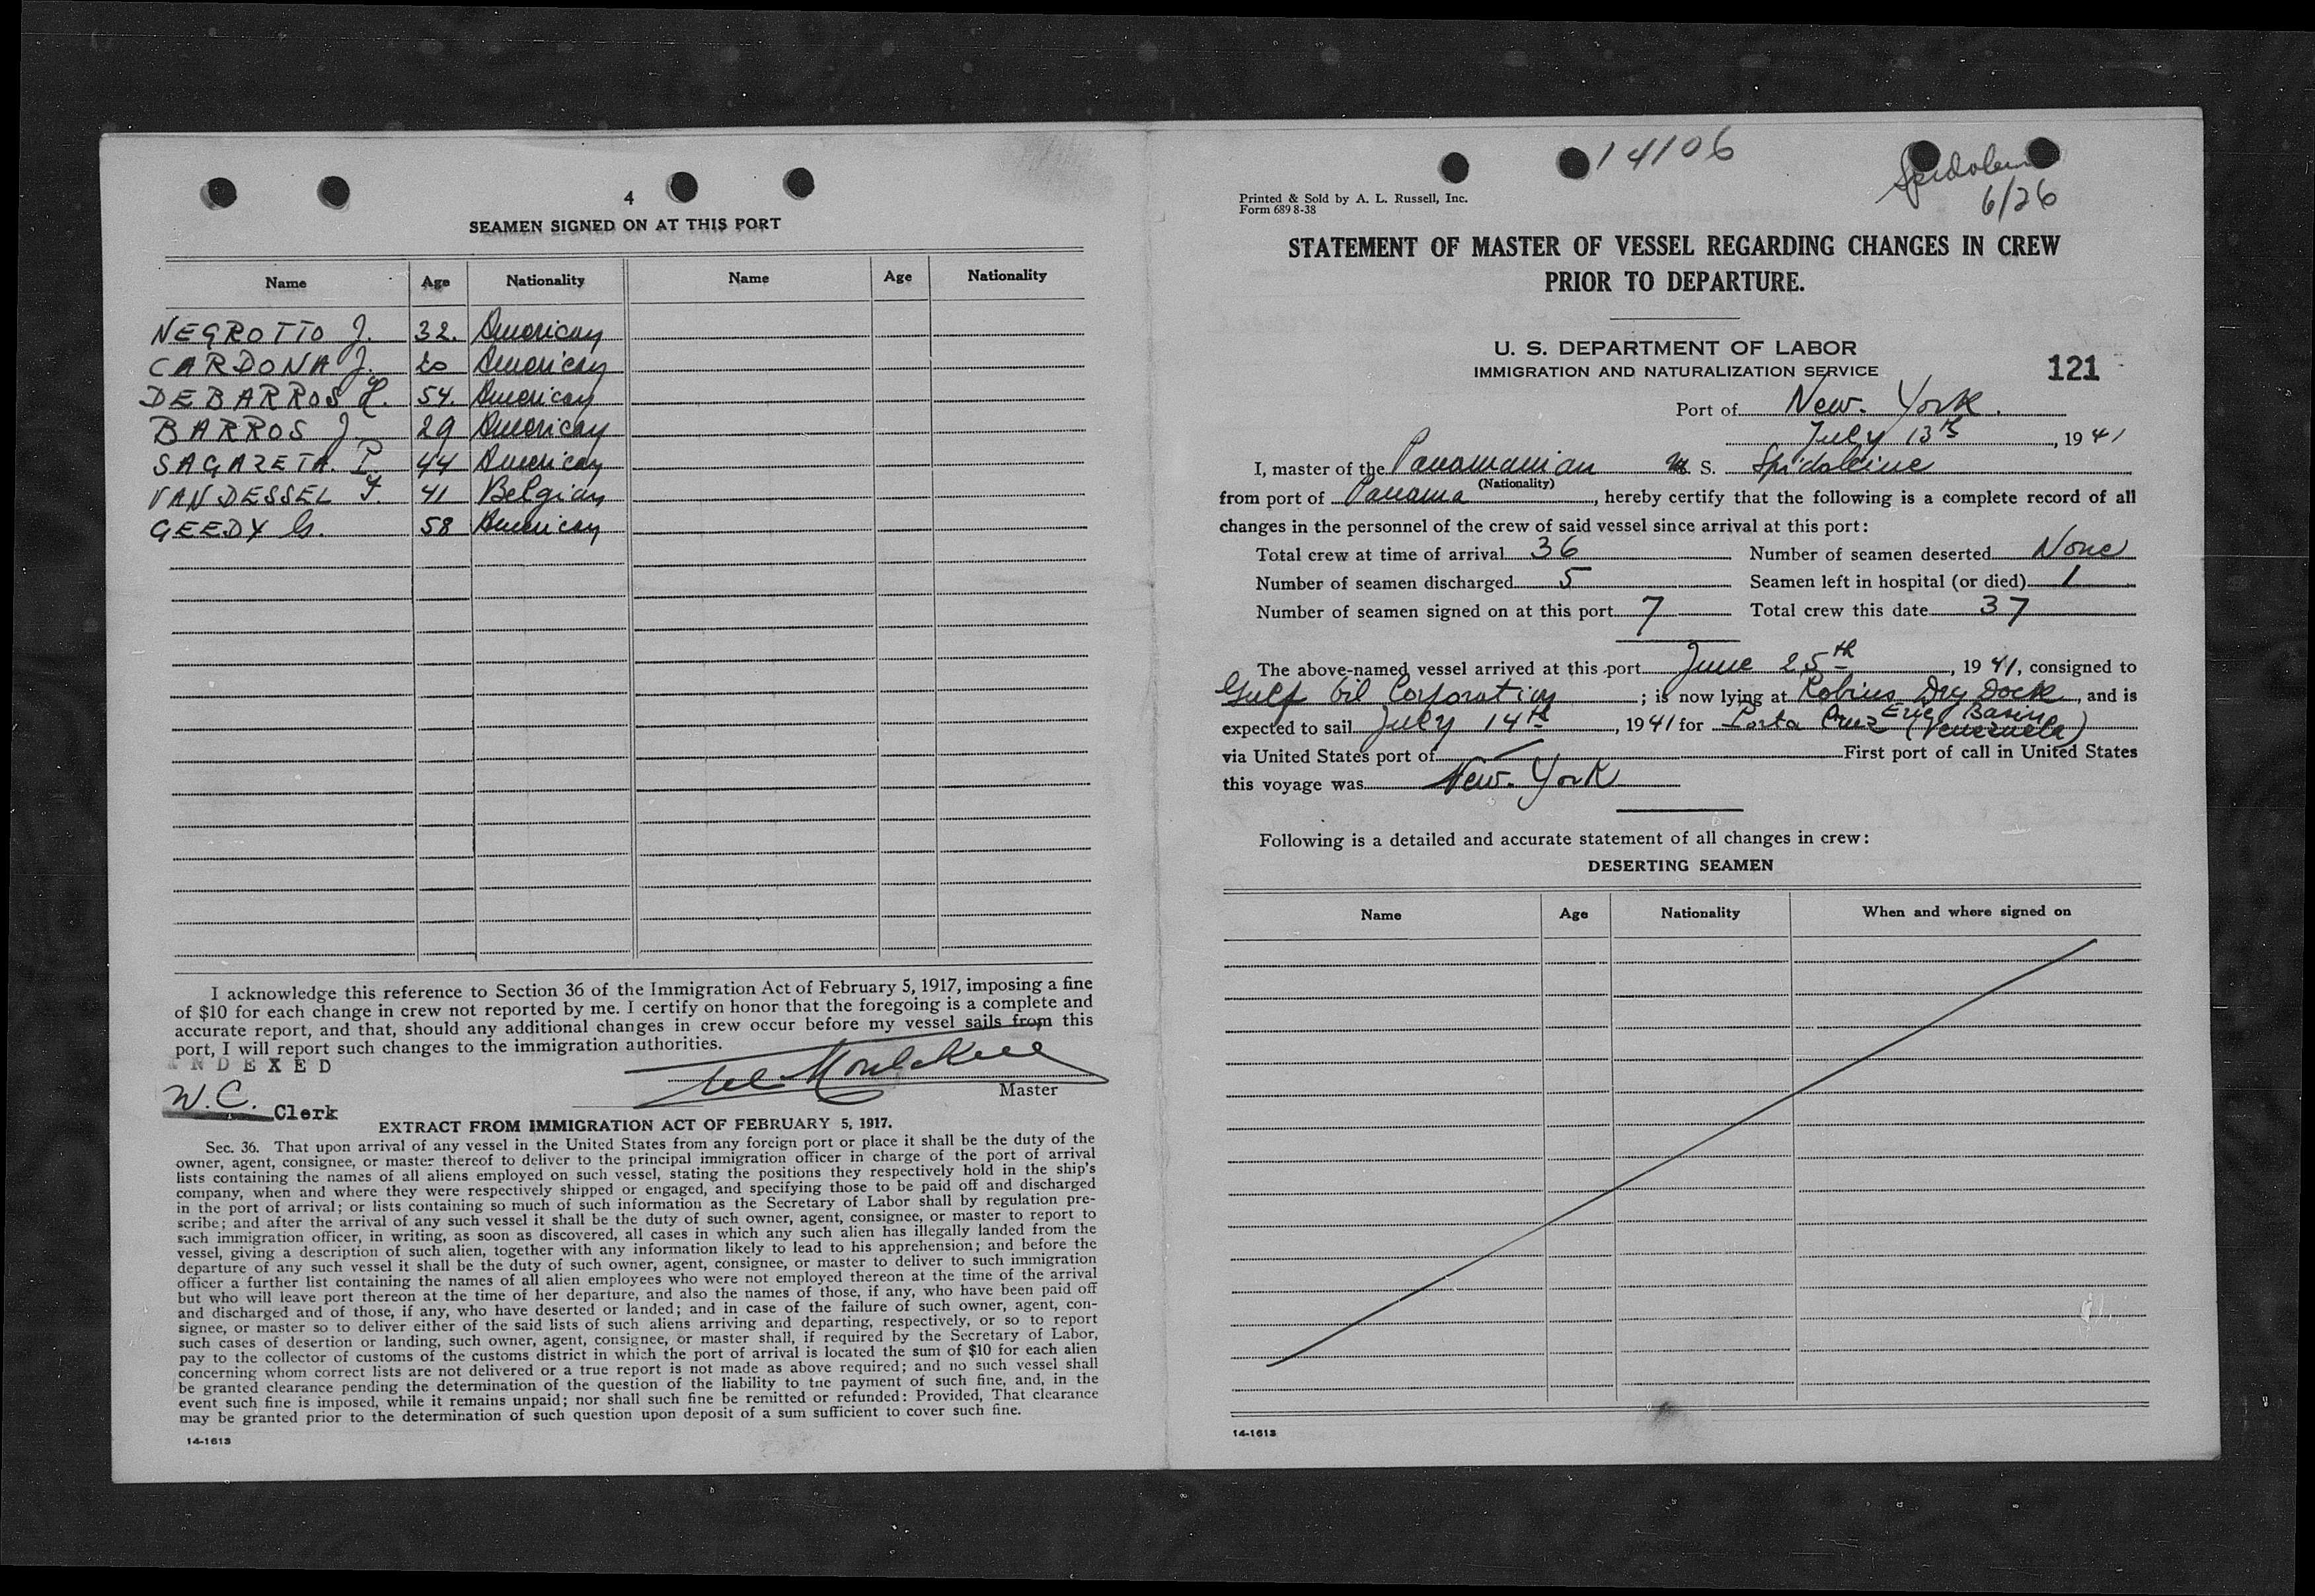 4
SEAMEN SIGNED ON AT THIS PORT
Name Age Nationality Name Age Nationality
NEGROTTO J. 32. American
CARDONA J. 20 American
DEBARROS H. 54. American
BARROS J. 29 American
SAGAZETA P. 44 American
VAN DESSEL F. 41 Belgian
GEEDY G. 58 American
I acknowledge this reference to Section 36 of the Immigration Act of February 5, 1917, imposing a fine
of $10 for each change in crew not reported by me. I certify on honor that the foregoing is a complete and
accurate report, and that, should any additional changes in crew occur before my vessel sails from this
port, I will report such changes to the immigration authorities.
INDEXED
Master
W.C. Clerk
EXTRACT FROM IMMIGRATION ACT OF FEBRUARY 5, 1917.
Sec. 36. That upon arrival of any vessel in the United States from any foreign port or place it shall be the duty of the
owner, agent, consignee, or master thereof to deliver to the principal immigration officer in charge of the port of arrival
lists containing the names of all aliens employed on such vessel, stating the positions they respectively hold in the ship's
company, when and where they were respectively shipped or engaged, and specifying those to be paid off and discharged
in the port of arrival; or lists containing so much of such information as the Secretary of Labor shall by regulation pre-
scribe; and after the arrival of any such vessel it shall be the duty of such owner, agent, consignee, or master to report to
such immigration officer, in writing, as soon as discovered, all cases in which any such alien has illegally landed from the
vessel, giving a description of such alien, together with any information likely to lead to his apprehension; and before the
departure of any such vessel it shall be the duty of such owner, agent, consignee, or master to deliver to such immigration
officer a further list containing the names of all alien employees who were not employed thereon at the time of the arrival
but who will leave port thereon at the time of her departure, and also the names of those, if any, who have been paid off
and discharged and of those, if any, who have deserted or landed; and in case of the failure of such owner, agent, con-
signee, or master so to deliver either of the said lists of such aliens arriving and departing, respectively, or so to report
such cases of desertion or landing, such owner, agent, consignee, or master shall, if required by the Secretary of Labor,
pay to the collector of customs of the customs district in which the port of arrival is located the sum of $10 for each alien
concerning whom correct lists are not delivered or a true report is not made as above required; and no such vessel shall
be granted clearance pending the determination of the question of the liability to the payment of such fine, and, in the
event such fine is imposed, while it remains unpaid; nor shall such fine be remitted or refunded: Provided, That clearance
may be granted prior to the determination of such question upon deposit of a sum sufficient to cover such fine.
14-1613
14106
6/26
Printed & Sold by A. L. Russell, Inc.
Form 689 8-38
STATEMENT OF MASTER OF VESSEL REGARDING CHANGES IN CREW
PRIOR TO DEPARTURE.
U. S. DEPARTMENT OF LABOR
IMMIGRATION AND NATURALIZATION SERVICE
121
Port of New. York.
July 13th, 1941
I, master of the Panamanian M S. Spidoleine
(Nationality)
from port of Panama, hereby certify that the following is a complete record of all
changes in the personnel of the crew of said vessel since arrival at this port:
Total crew at time of arrival 36 Number of seamen deserted None
Number of seamen discharged 5 Seamen left in hospital (or died) 1
Number of seamen signed on at this port 7 Total crew this date 37
The above-named vessel arrived at this port June 25th, 1941, consigned to
Gulf Oil Corporation; is now lying at Robins Dry Dock, and is
Erie Basin
expected to sail July 14th, 1941 for Porta Cruz (Venezuela)
via United States port of First port of call in United States
this voyage was New. York
Following is a detailed and accurate statement of all changes in crew:
DESERTING SEAMEN
Name Age Nationality When and where signed on
14-1613